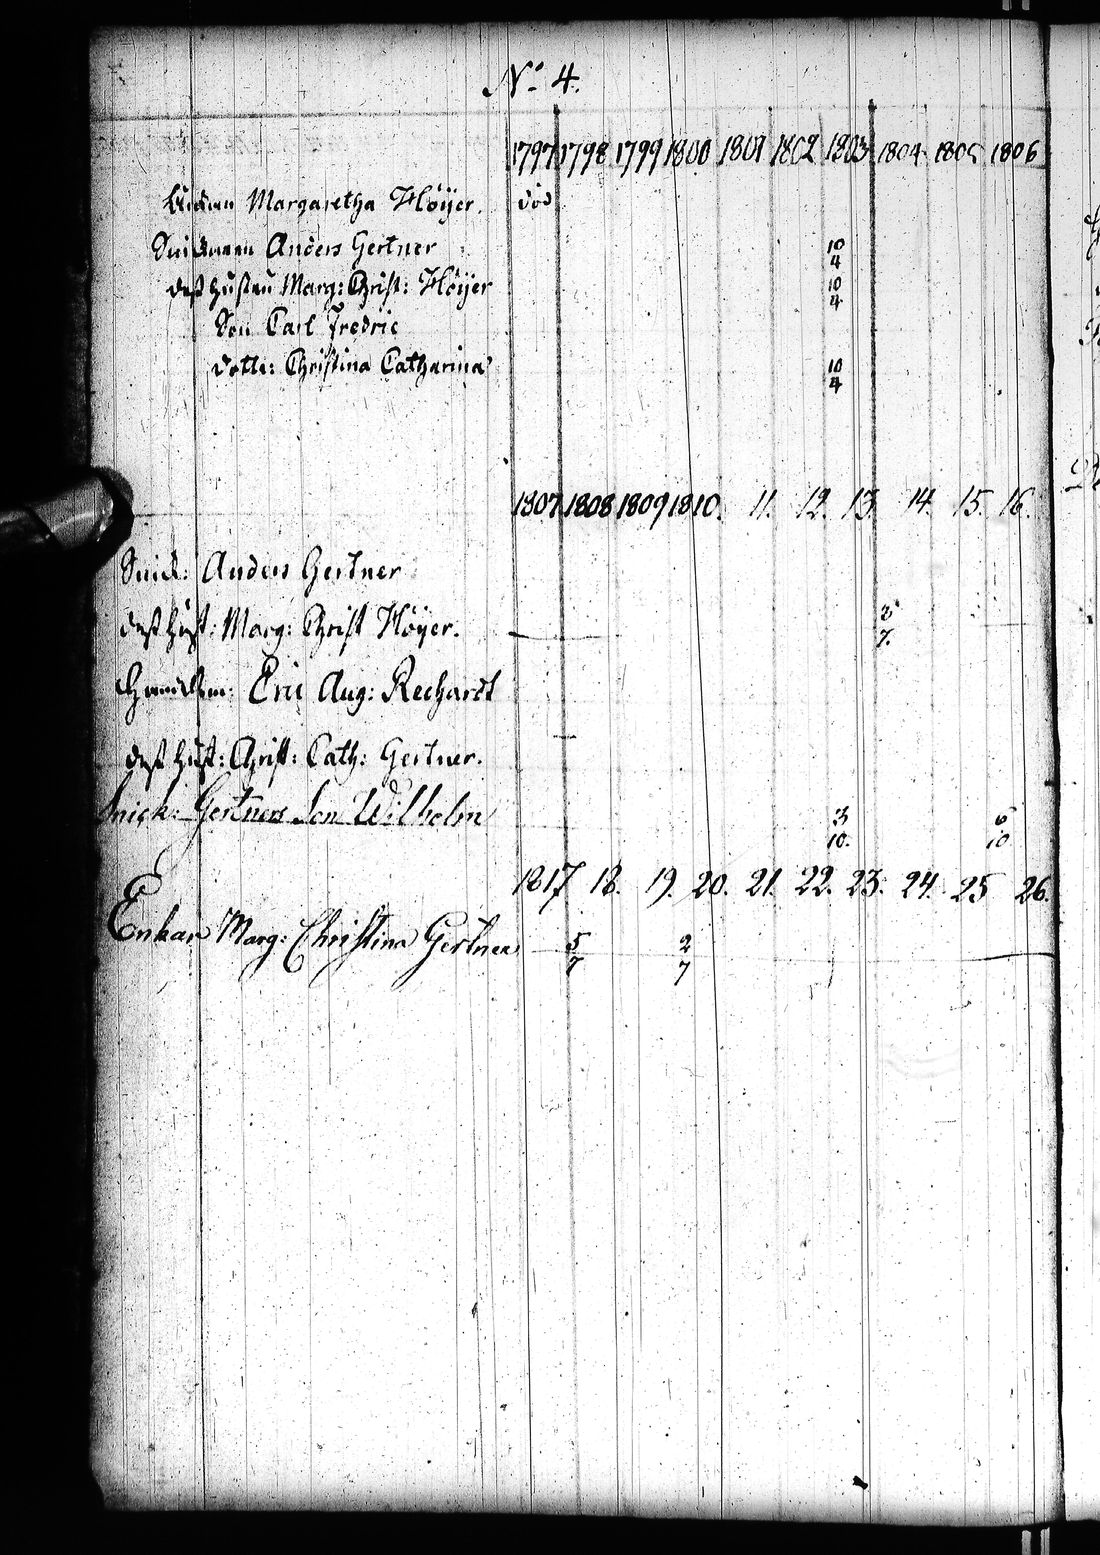 No 4.
1797 1798 1799 1800 1801 1802 1803 1804 1805 1806
Enkan Margaretha Höijer. död
Snickaren Anders Gertner 10/4
dess hustru Marg: Christ: Höijer 10/4
Son Carl Fredric
dotte: Christina Catharina 10/4
1807 1808 1809 1810. 11. 12. 13. 14. 15. 16.
Snick: Anders Gertner
dess hust: Marg: Christ Höijer. 3/7.
Eric Aug: Rechardt
dess hust: Christ: Cath: Gertner.
Snick: Gertners Son Wilhelm 3/10. 6/10
1817 18. 19. 20. 21. 22. 23. 24. 25 26.
Enkan Marg: Christina Gertner 5/7 2/7